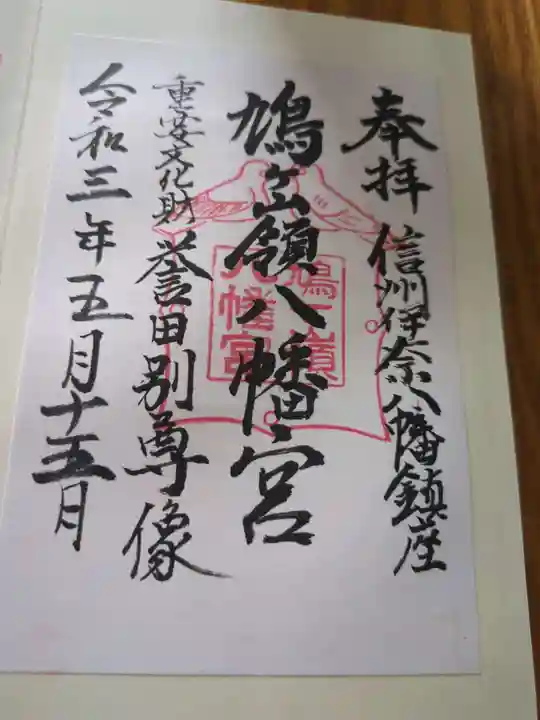 奉拝
信州伊奈八幡鎮座
鳩ヶ嶺八幡宮
鳩ヶ嶺
八幡宮
重要文化財
誉田別尊像
令和三年五月十五日